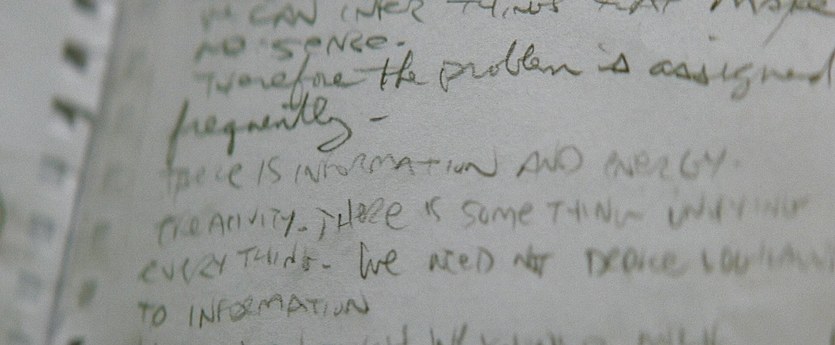 WE CAN INFER THINGS THAT MAKE
NO SENSE.
Therefore the problem is assigned
frequently -
THERE IS INFORMATION AND ENERGY.
CREATIVITY. THERE IS SOMETHING UNIFYING
EVERYTHING. WE NEED NOT
TO INFORMATION